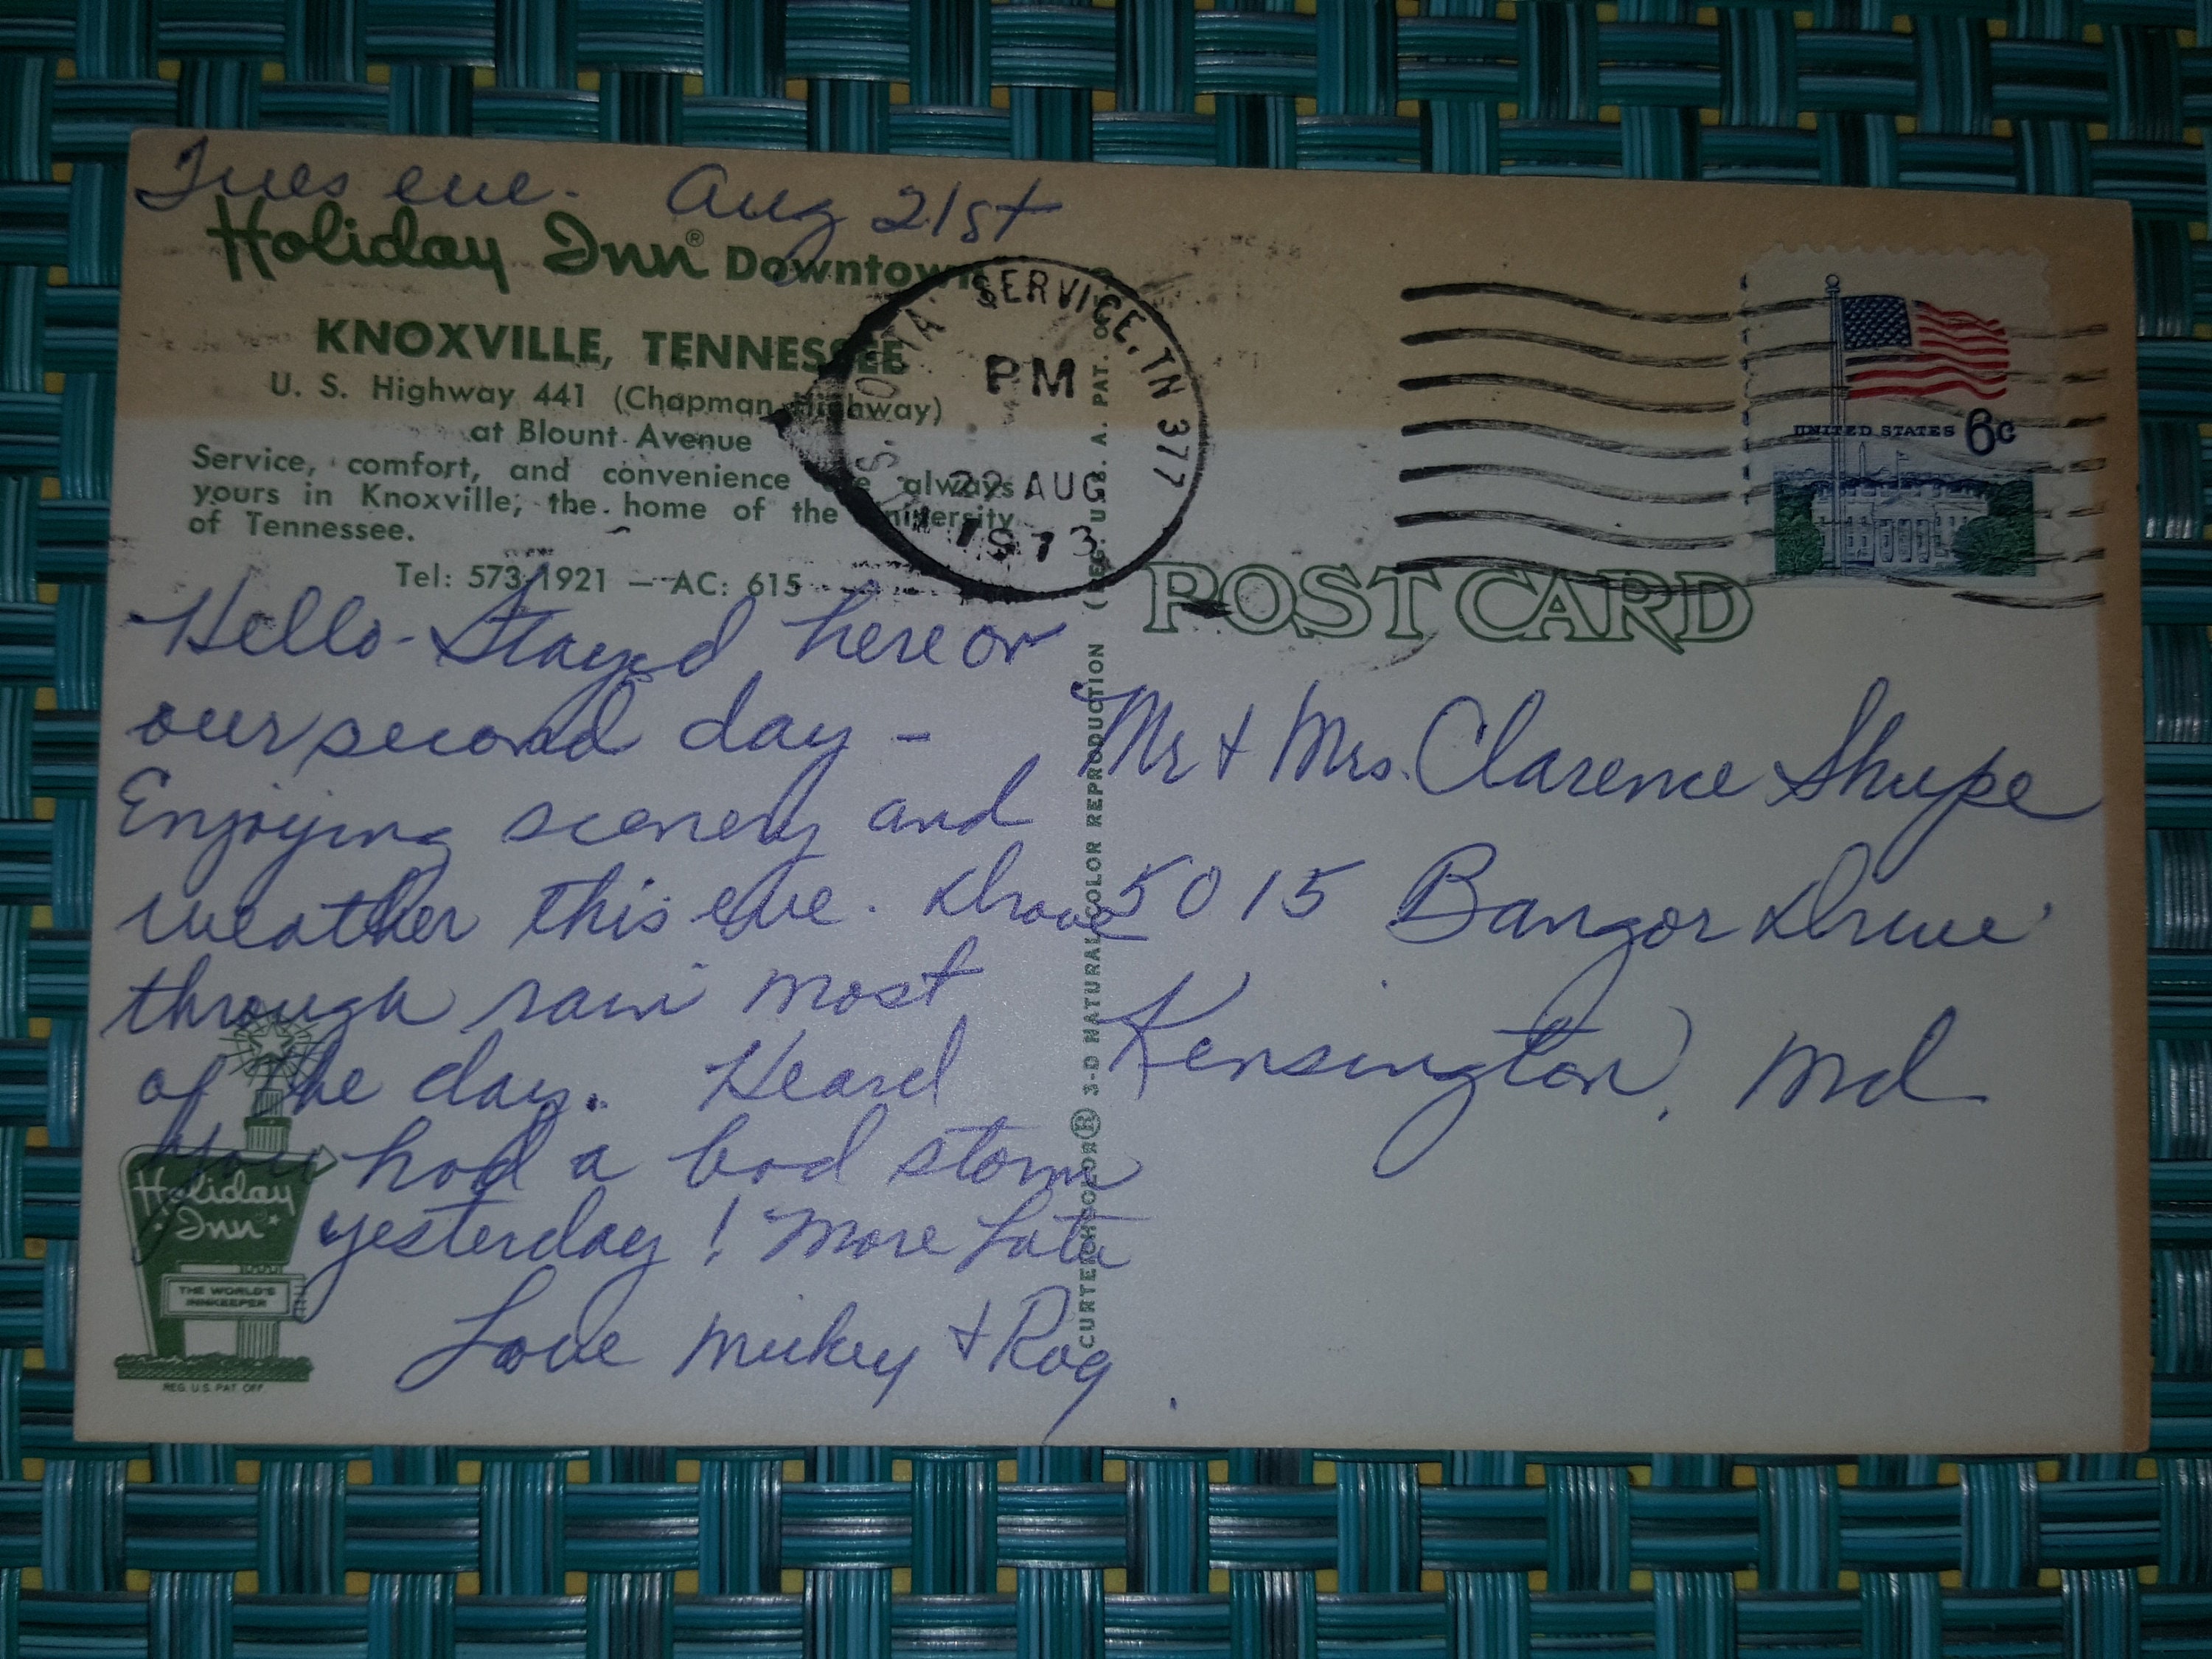 Tues eve. Aug 21st
Holiday Inn® Downtown
KNOXVILLE, TENNESSEE
U. S. Highway 441 (Chapman Highway)
at Blount Avenue
Service, comfort, and convenience are always
yours in Knoxville, the home of the University
of Tennessee.
Tel: 573-1921 — AC: 615
Hello - Stayed here on
our second day -
Enjoying scenery and
weather this eve. Drove
through rain most
of the day. Heard
you had a bad storm
yesterday! More Later
Love Mickey + Rog.
Holiday
Inn
THE WORLD'S
INNKEEPER
REG. U.S. PAT. OFF
CURTEICHCOLOR® 3-D NATURAL COLOR REPRODUCTION (REG. U.S.A. PAT. OFF.)
U.S. POSTAL SERVICE, TN 377
PM
22 AUG
1973
UNITED STATES 6c
POST CARD
Mr + Mrs. Clarence Shupe
5015 Bangor Drive
Kensington, Md